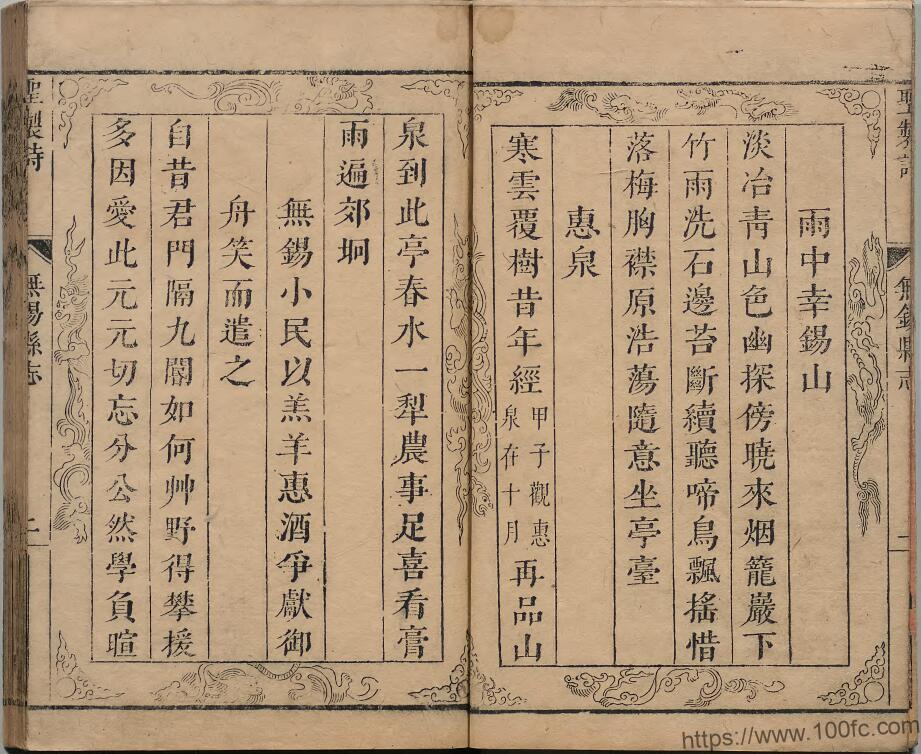 聖製詩
無錫縣志
二
雨中幸錫山
淡冶青山色幽探傍曉來烟籠巖下
竹雨洗石邊苔斷續聽啼鳥飄搖惜
落梅胸襟原浩蕩隨意坐亭臺
惠泉
寒雲覆樹昔年經甲子觀惠泉在十月再品山
泉到此亭春水一犁農事足喜看膏
雨遍郊坰
無錫小民以羔羊惠酒爭獻御
舟笑而遣之
自昔君門隔九閽如何艸野得攀援
多因愛此元元切忘分公然學負暄
聖製詩
無錫縣志
二
https://www.100fc.com